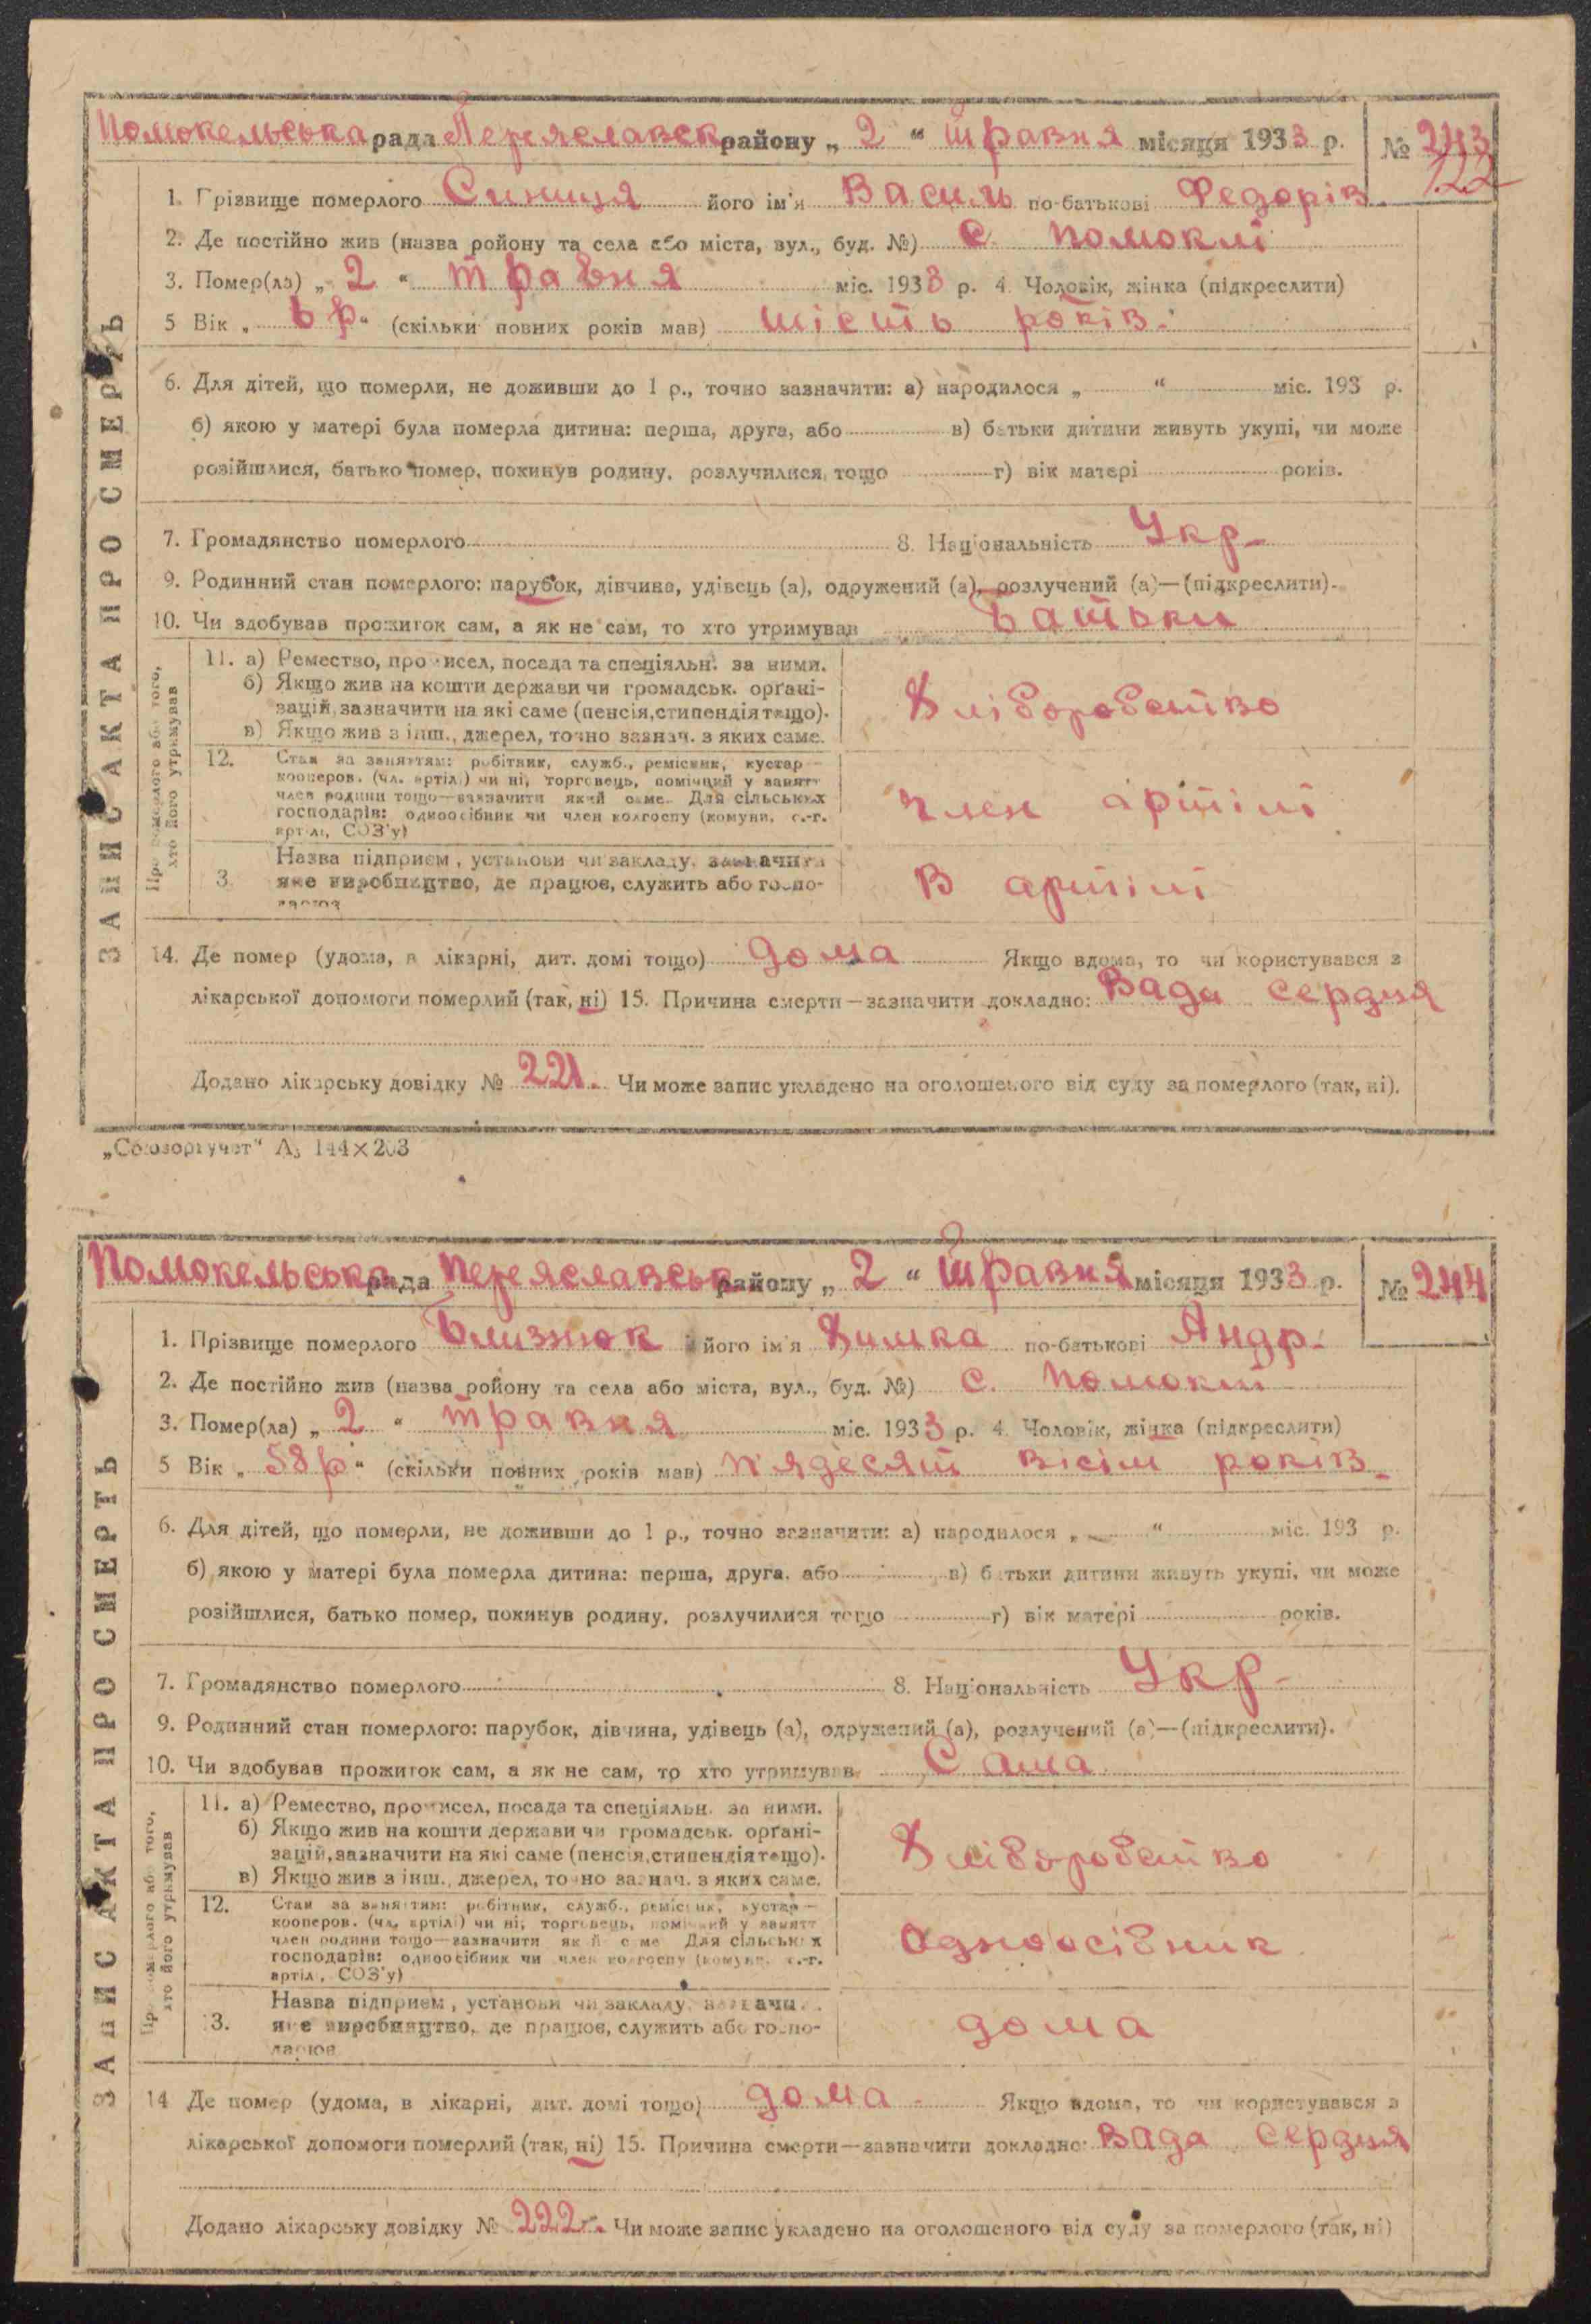 Помокельська рада Переяславськ району „ 2 “ травня місяця 1933 р. № 243
122
1. Прізвище померлого Синиця його ім'я Василь по-батькові Федорів.
2. Де постійно жив (назва ройону та села або міста, вул., буд. №) с. Помоклі
3. Помер(ла) „ 2 “ травня міс. 1933 р. 4. Чоловік, жінка (підкреслити)
5 Вік „ 6 р. “ (скільки повних років мав) шість років.
6. Для дітей, що померли, не доживши до 1 р., точно зазначити: а) народилося „ “ міс. 193 р.
б) якою у матері була померла дитина: перша, друга, або в) батьки дитини живуть укупі, чи може
розійшлися, батько помер, покинув родину, розлучилися, тощо г) вік матері років.
7. Громадянство померлого 8. Національність Укр.
9. Родинний стан померлого: парубок, дівчина, удівець (а), одружений (а), розлучений (а)—(підкреслити).
10. Чи здобував прожиток сам, а як не сам, то хто утримував Батьки
ЗАПИС АКТА ПРО СМЕРТЬ
Про померлого або того,
хто його утримував
11. а) Ремество, промисел, посада та спеціяльн. за ними.
б) Якщо жив на кошти держави чи громадськ. органі-
зацій, зазначити на які саме (пенсія, стипендія тощо).
в) Якщо жив з інш., джерел, точно зазнач. з яких саме.
Хліборобство
12. Стан за заняттям: робітник, служб., ремісник, кустар—
кооперов. (чл. артілі) чи ні, торговець, помічний у занятт
член родини тощо—зазначити який саме. Для сільських
господарів: одноосібник чи член колгоспу (комуни, с.-г.
артілі, СОЗ'у)
член артілі
3. Назва підприєм., установи чи закладу, зазначити
яке виробництво, де працює, служить або госпо-
дарює
В артілі
14. Де помер (удома, в лікарні, дит. домі тощо) дома Якщо вдома, то чи користувався з
лікарської допомоги померлий (так, ні) 15. Причина смерти—зазначити докладно: Вада сердця
Додано лікарську довідку № 221. Чи може запис укладено на оголошеного від суду за померлого (так, ні).
„Союзоргучет“ А₅ 144×203
Помокельська рада Переяславськ району „ 2 “ травня місяця 1933 р. № 244
1. Прізвище померлого Близнюк його ім'я Химка по-батькові Андр.
2. Де постійно жив (назва ройону та села або міста, вул., буд. №) с. Помоклі
3. Помер(ла) „ 2 “ травня міс. 1933 р. 4. Чоловік, жінка (підкреслити)
5 Вік „ 58 р “ (скільки повних років мав) п'ядесят вісім років.
6. Для дітей, що померли, не доживши до 1 р., точно зазначити: а) народилося „ “ міс. 193 р.
б) якою у матері була померла дитина: перша, друга, або в) батьки дитини живуть укупі, чи може
розійшлися, батько помер, покинув родину, розлучилися тощо г) вік матері років.
7. Громадянство померлого 8. Національність Укр.
9. Родинний стан померлого: парубок, дівчина, удівець (а), одружений (а), розлучений (а)—(підкреслити).
10. Чи здобував прожиток сам, а як не сам, то хто утримував Сама
ЗАПИС АКТА ПРО СМЕРТЬ
Про померлого або того,
хто його утримував
11. а) Ремество, промисел, посада та спеціяльн. за ними.
б) Якщо жив на кошти держави чи громадськ. органі-
зацій, зазначити на які саме (пенсія, стипендія тощо).
в) Якщо жив з інш., джерел, точно зазнач. з яких саме.
Хліборобство
12. Стан за заняттям: робітник, служб., ремісник, кустар—
кооперов. (чл. артілі) чи ні, торговець, помічний у занятт
член родини тощо—зазначити який саме Для сільських
господарів: одноосібник чи член колгоспу (комуни, с.-г.
артілі, СОЗ'у)
Одноосібник
3. Назва підприєм., установи чи закладу, зазначи
яке виробництво, де працює, служить або госпо-
дарює
дома
14 Де помер (удома, в лікарні, дит. домі тощо) дома. Якщо вдома, то чи користувався з
лікарської допомоги померлий (так, ні) 15. Причина смерти—зазначити докладно: Вада сердця
Додано лікарську довідку № 222. Чи може запис укладено на оголошеного від суду за померлого (так, ні)